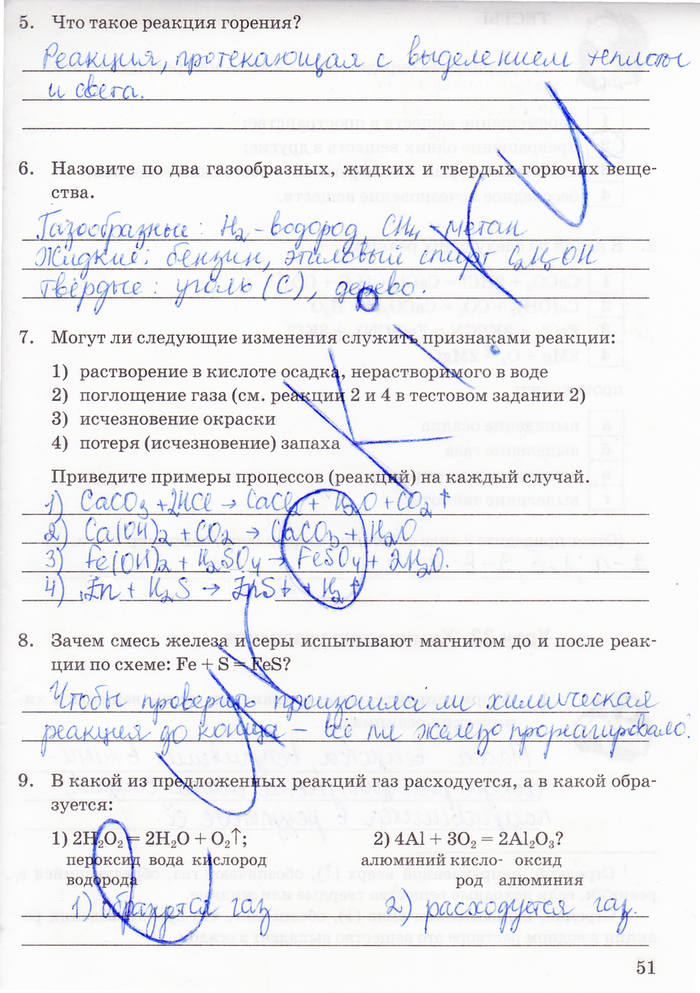 5. Что такое реакция горения?
Реакция, протекающая с выделением теплоты
и света.
6. Назовите по два газообразных, жидких и твердых горючих веще-
ства.
Газообразные: H₂-водород, CH₄-метан
Жидкие: бензин, этиловый спирт C₂H₅OH
Твёрдые: уголь (C), дерево.
7. Могут ли следующие изменения служить признаками реакции:
1) растворение в кислоте осадка, нерастворимого в воде
2) поглощение газа (см. реакции 2 и 4 в тестовом задании 2)
3) исчезновение окраски
4) потеря (исчезновение) запаха
Приведите примеры процессов (реакций) на каждый случай.
1) CaCO₃ +2HCl → CaCl₂ + H₂O + CO₂↑
2) Ca(OH)₂ + CO₂ → CaCO₃ + H₂O
3) Fe(OH)₂ + H₂SO₄ → FeSO₄ + 2H₂O.
4) Zn + H₂S → ZnS↓ + H₂↑
8. Зачем смесь железа и серы испытывают магнитом до и после реак-
ции по схеме: Fe + S = FeS?
Чтобы проверить произошла ли химическая
реакция до конца – всё ли железо прореагировало.
9. В какой из предложенных реакций газ расходуется, а в какой обра-
зуется:
1) 2H₂O₂ = 2H₂O + O₂↑; 2) 4Al + 3O₂ = 2Al₂O₃?
пероксид вода кислород алюминий кисло- оксид
водорода род алюминия
1) образуется газ 2) расходуется газ.
51